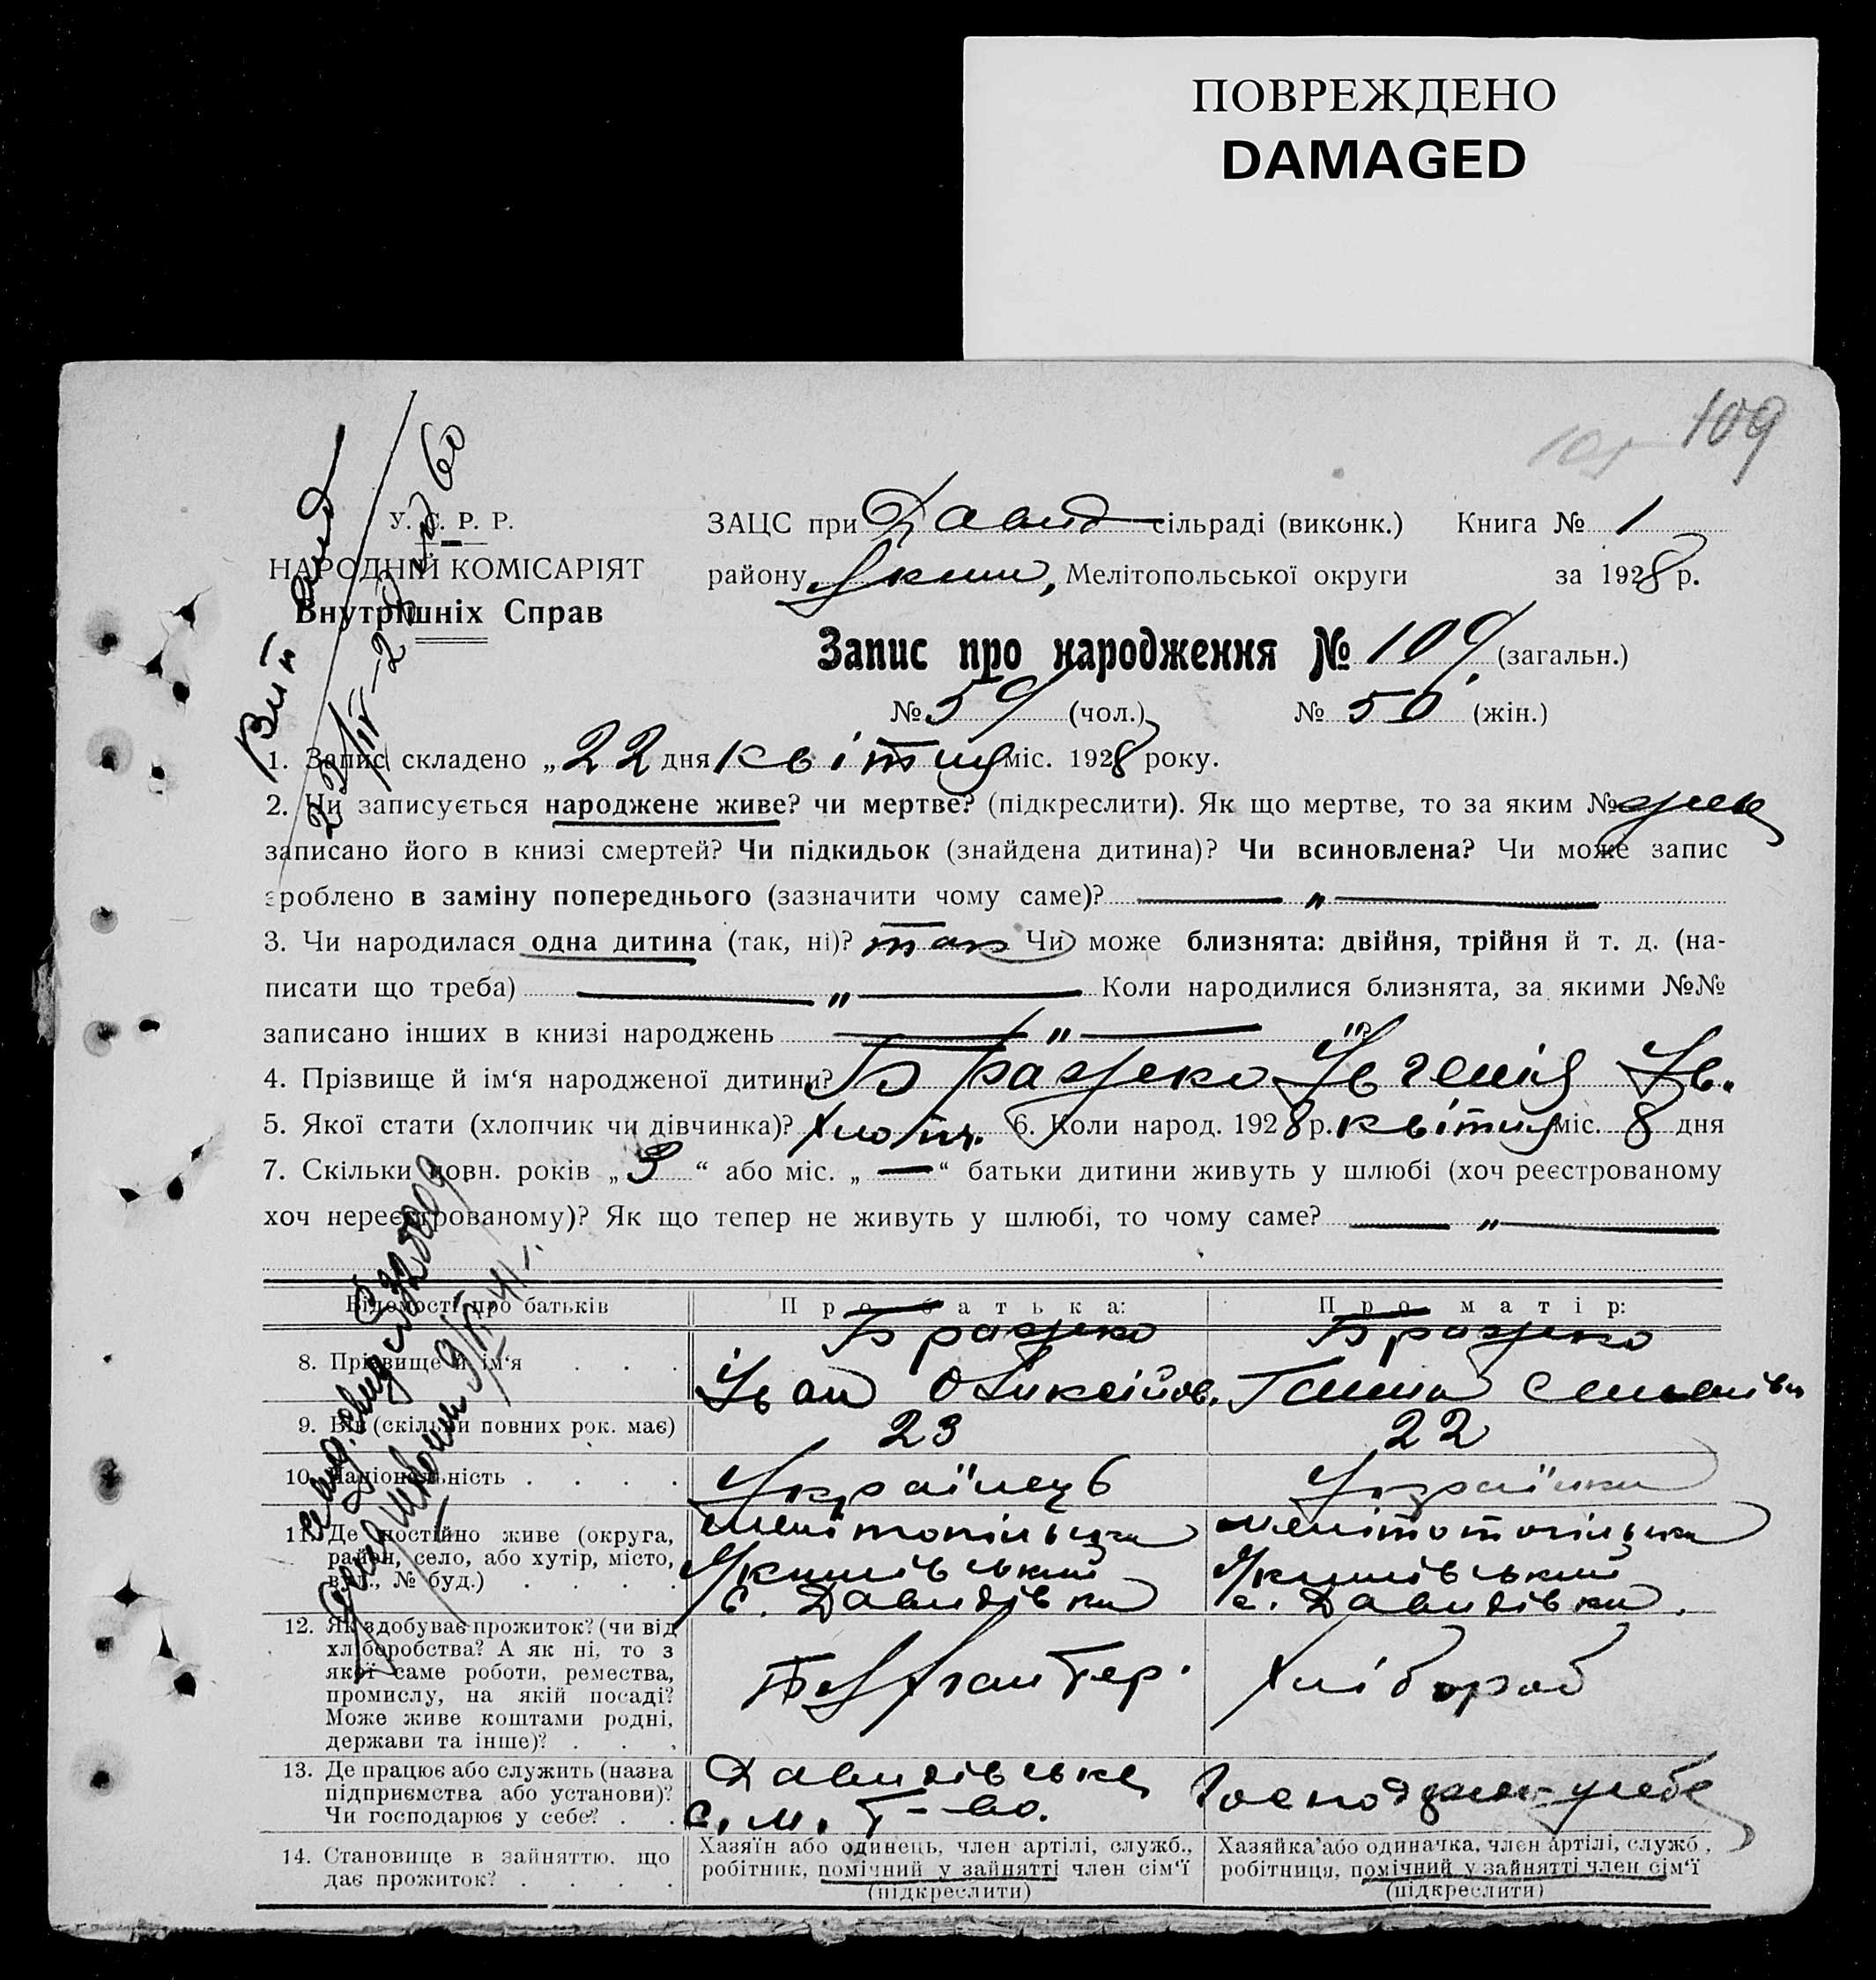 ПОВРЕЖДЕНО
DAMAGED
109
У. С. Р. Р.
НАРОДНІЙ КОМІСАРІЯТ
Внутрішніх Справ
ЗАЦС при Давид сільраді (виконк.) Книга № 1
району Яким, Мелітопольської округи за 1928 р.
Запис про народження № 109 (загальн.)
№ 59 (чол.) № 50 (жін.)
1. Запис складено „ 22 дня квітня міс. 1928 року.
2. Чи записується народжене живе? чи мертве? (підкреслити). Як що мертве, то за яким №
записано його в книзі смертей? Чи підкидьок (знайдена дитина)? Чи всиновлена? Чи може запис
зроблено в заміну попереднього (зазначити чому саме)? — „ —
3. Чи народилася одна дитина (так, ні)? так Чи може близнята: двійня, трійня й т. д. (на-
писати що треба) — „ — Коли народилися близнята, за якими №№
записано інших в книзі народжень — „ —
4. Прізвище й ім‘я народженої дитини? Бражко Ів.
5. Якої стати (хлопчик чи дівчинка)? хлопч. 6. Коли народ. 1928 р. квітня міс. 8 дня
7. Скільки повн. років „ 3 “ або міс. „ — “ батьки дитини живуть у шлюбі (хоч реєстрованому
хоч нереєстрованому)? Як що тепер не живуть у шлюбі, то чому саме? — „ —
Відомості про батьків Про батька: Про матір:
8. Прізвище й ім‘я . . . Бражко Бражко
Іван Оликсійов. Ганна Семенівн
9. Вік (скільки повних рок. має) 23 22
10. Національність . . . . Українець Українка
11. Де постійно живе (округа,
район, село, або хутір, місто,
вул., № буд.) . . . .
Мелітопільська
Якимівський
с. Давидівка
мелітотопільська
Якимівський
с. Давидівка.
12. Як здобуває прожиток? (чи від
хліборобства? А як ні, то з
якої саме роботи, ремества,
промислу, на якій посаді?
Може живе коштами родні,
держави та інше)? . . .
Бухгалтер. Хлібороб
13. Де працює або служить (назва
підприємства або установи)?
Чи господарює у себе? . .
Давидівське
с. м. т-во.
Господарює у себе
14. Становище в зайняттю, що
дає прожиток? . . . .
Хазяїн або одинець, член артілі, служб.,
робітник, помічний у зайнятті член сім‘ї
(підкреслити)
Хазяйка або одиначка, член артілі, служб.,
робітниця, помічний у зайнятті член сім‘ї
(підкреслити)